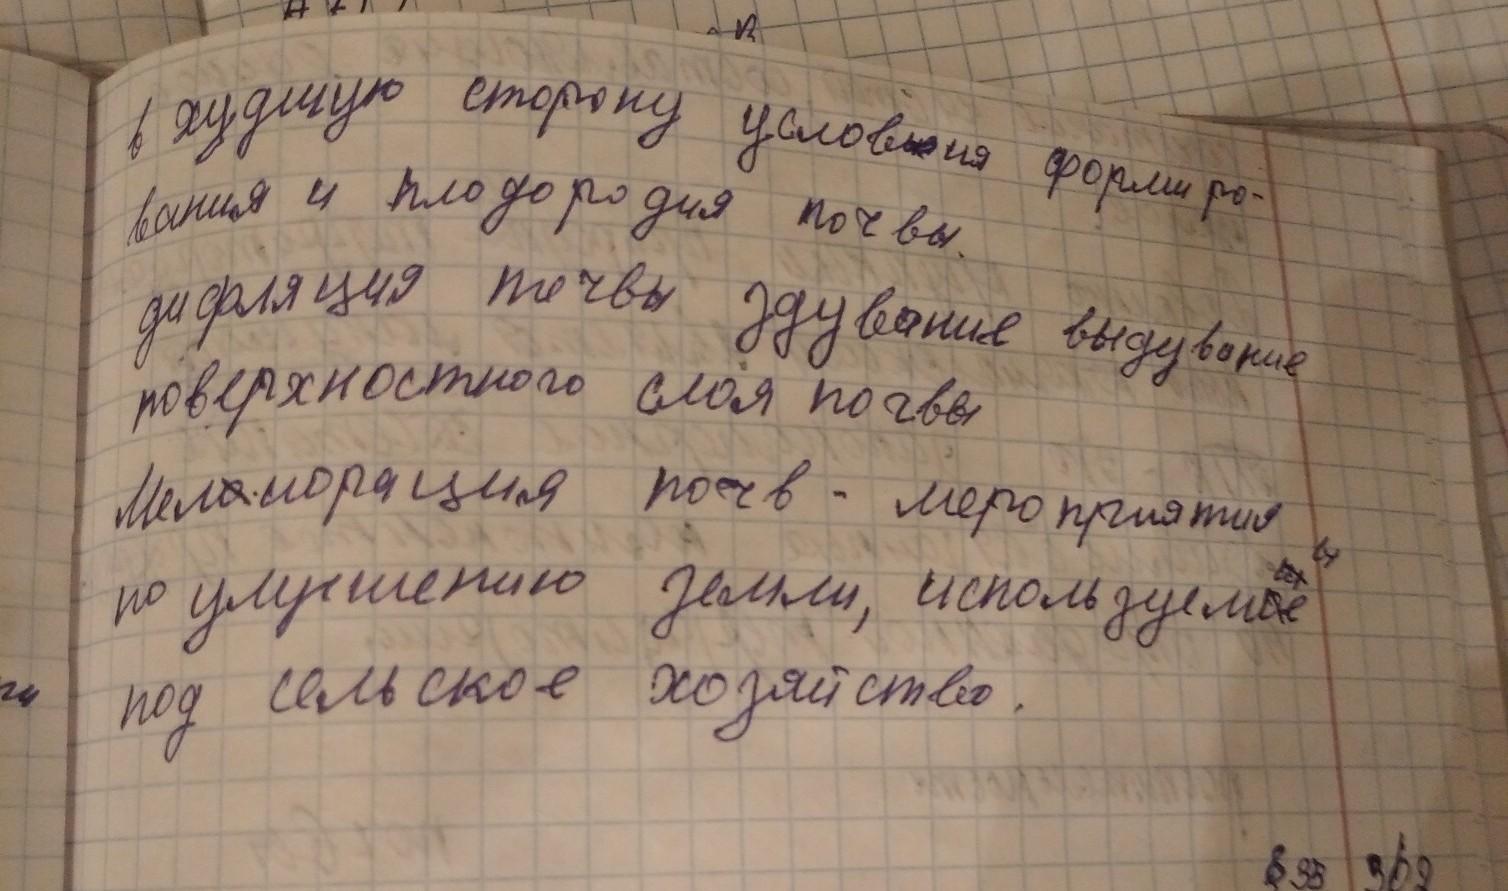 в худшую сторону условия формиро-
вания и плодородия почвы.
дифляция почвы здувание выдувание
поверхностного слоя почвы
Мелиорация почв - мероприятия
по улучшению земли, используемы
под сельское хозяйство.